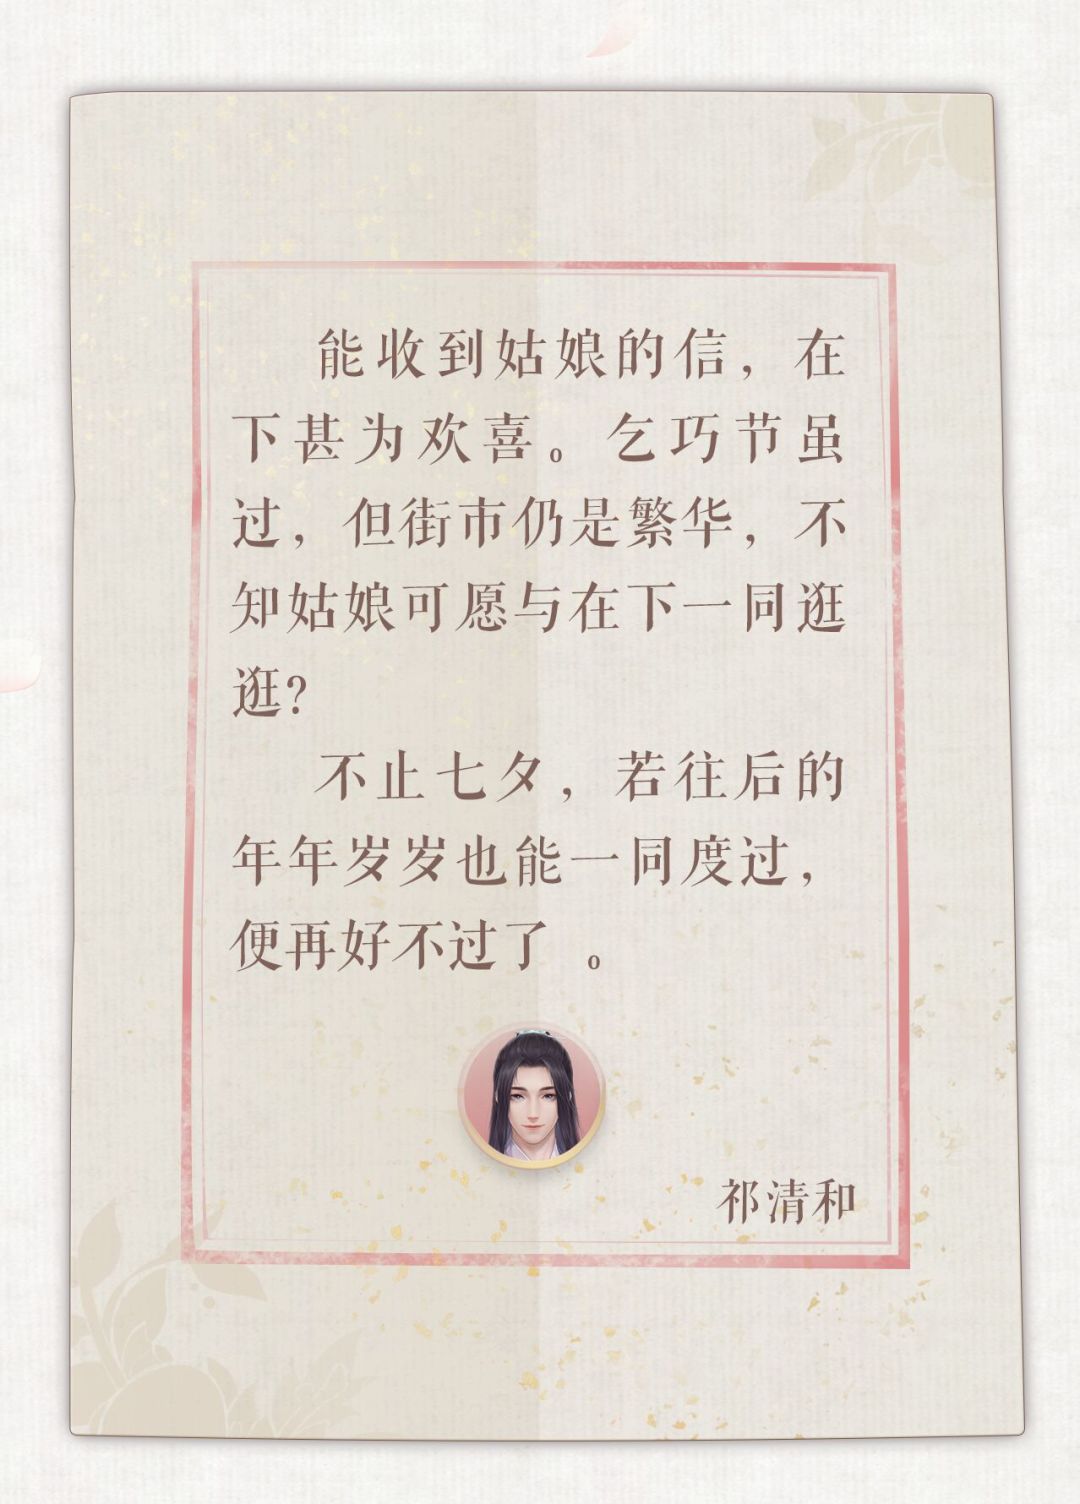 能收到姑娘的信，在
下甚为欢喜。乞巧节虽
过，但街市仍是繁华，不
知姑娘可愿与在下一同逛
逛？
不止七夕，若往后的
年年岁岁也能一同度过，
便再好不过了 。
祁清和